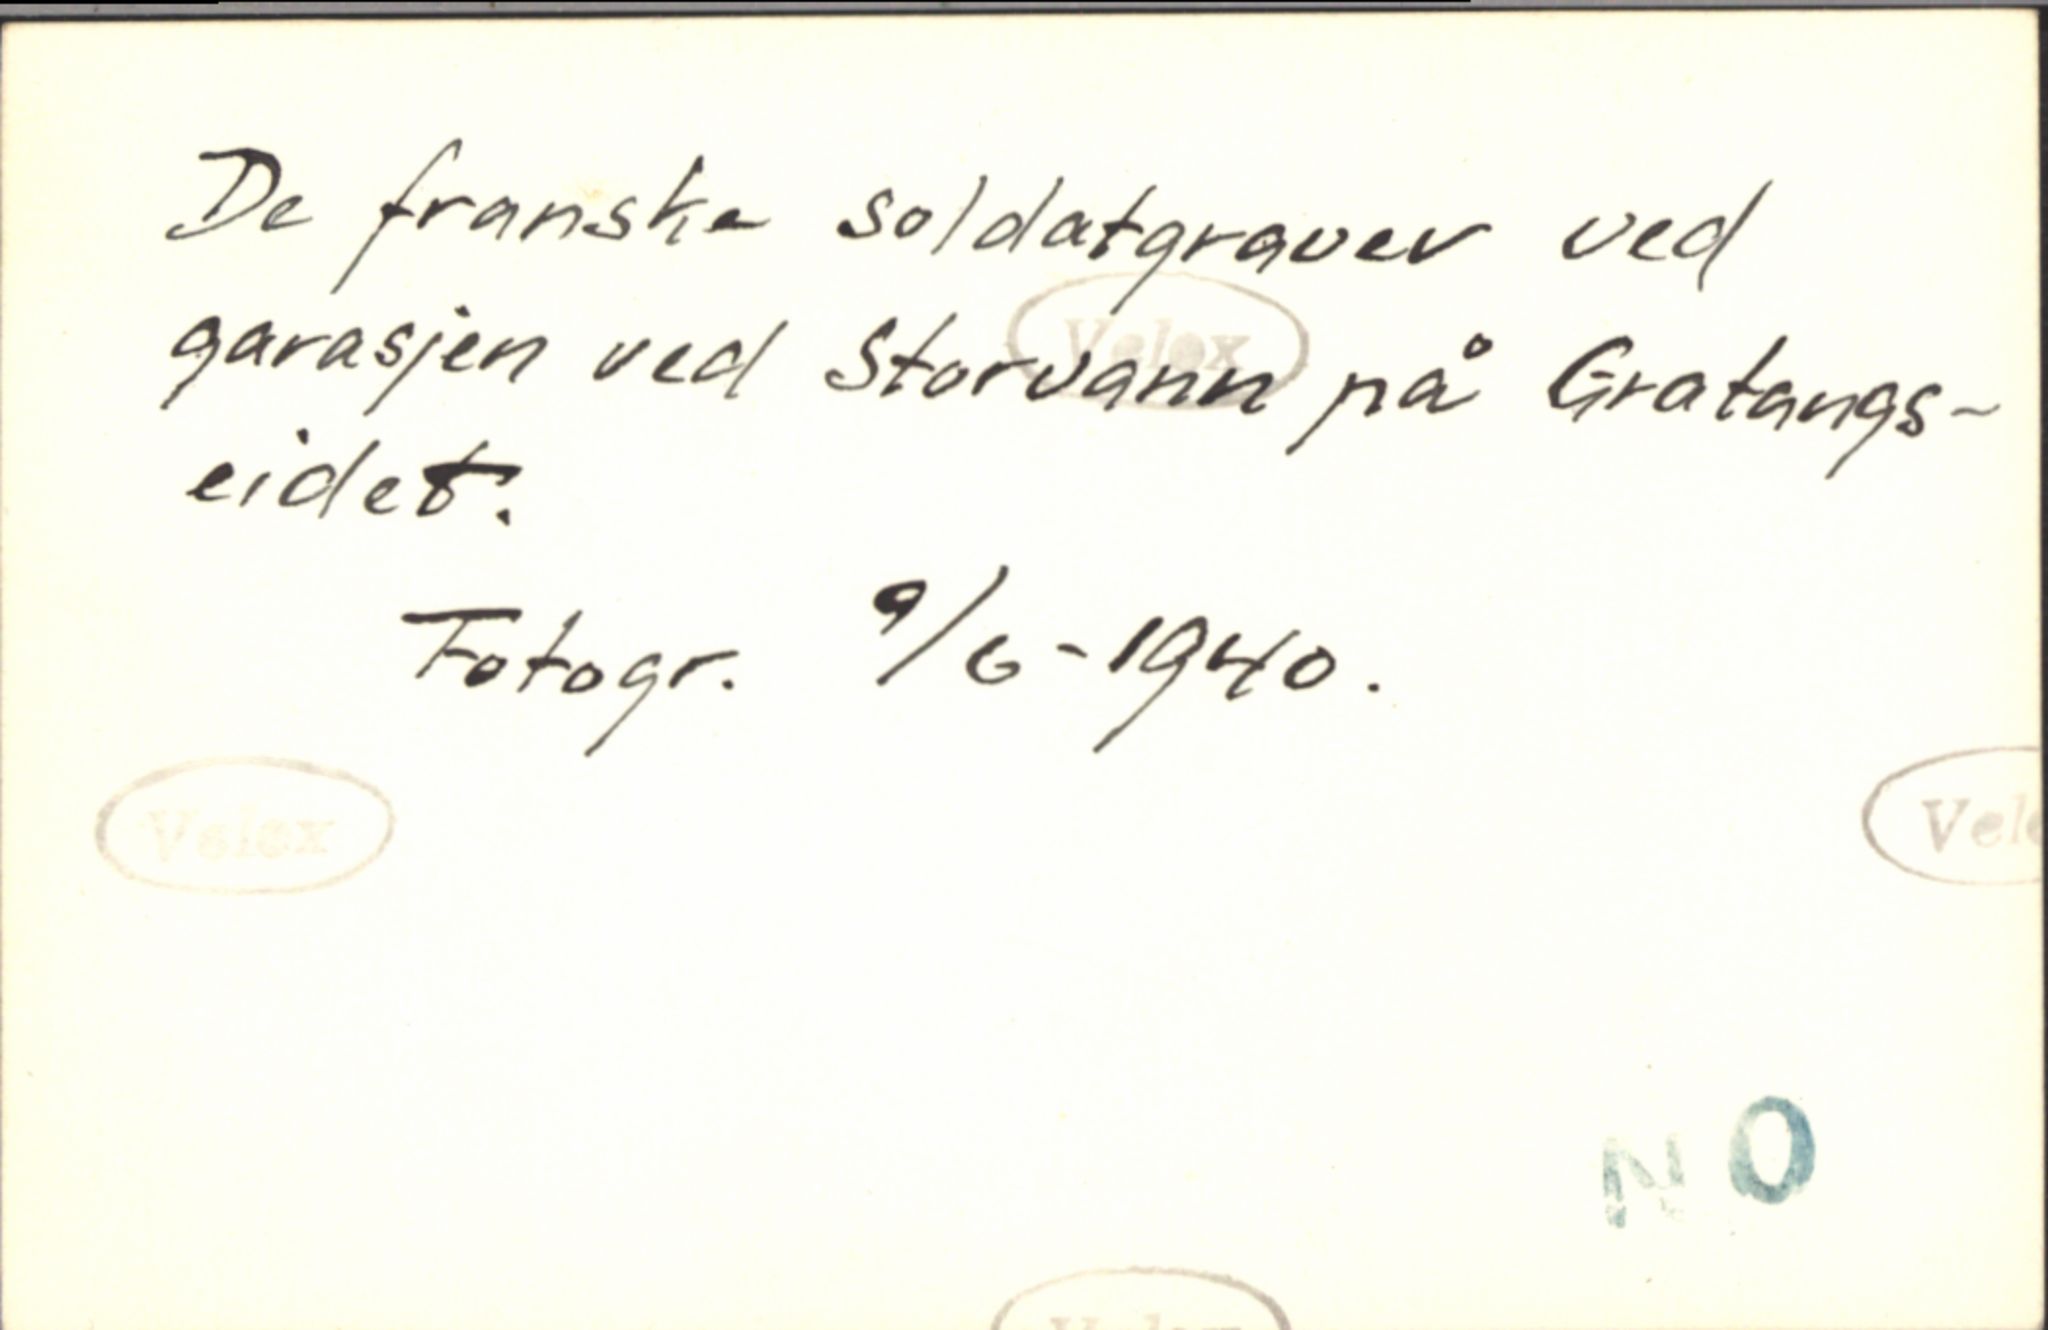 De franske soldatgraver ved
Velox
garasjen ved Storvann på Gratangs-
eidet.
Fotogr. 9/6-1940.
Velox
Vele
NO
Velox